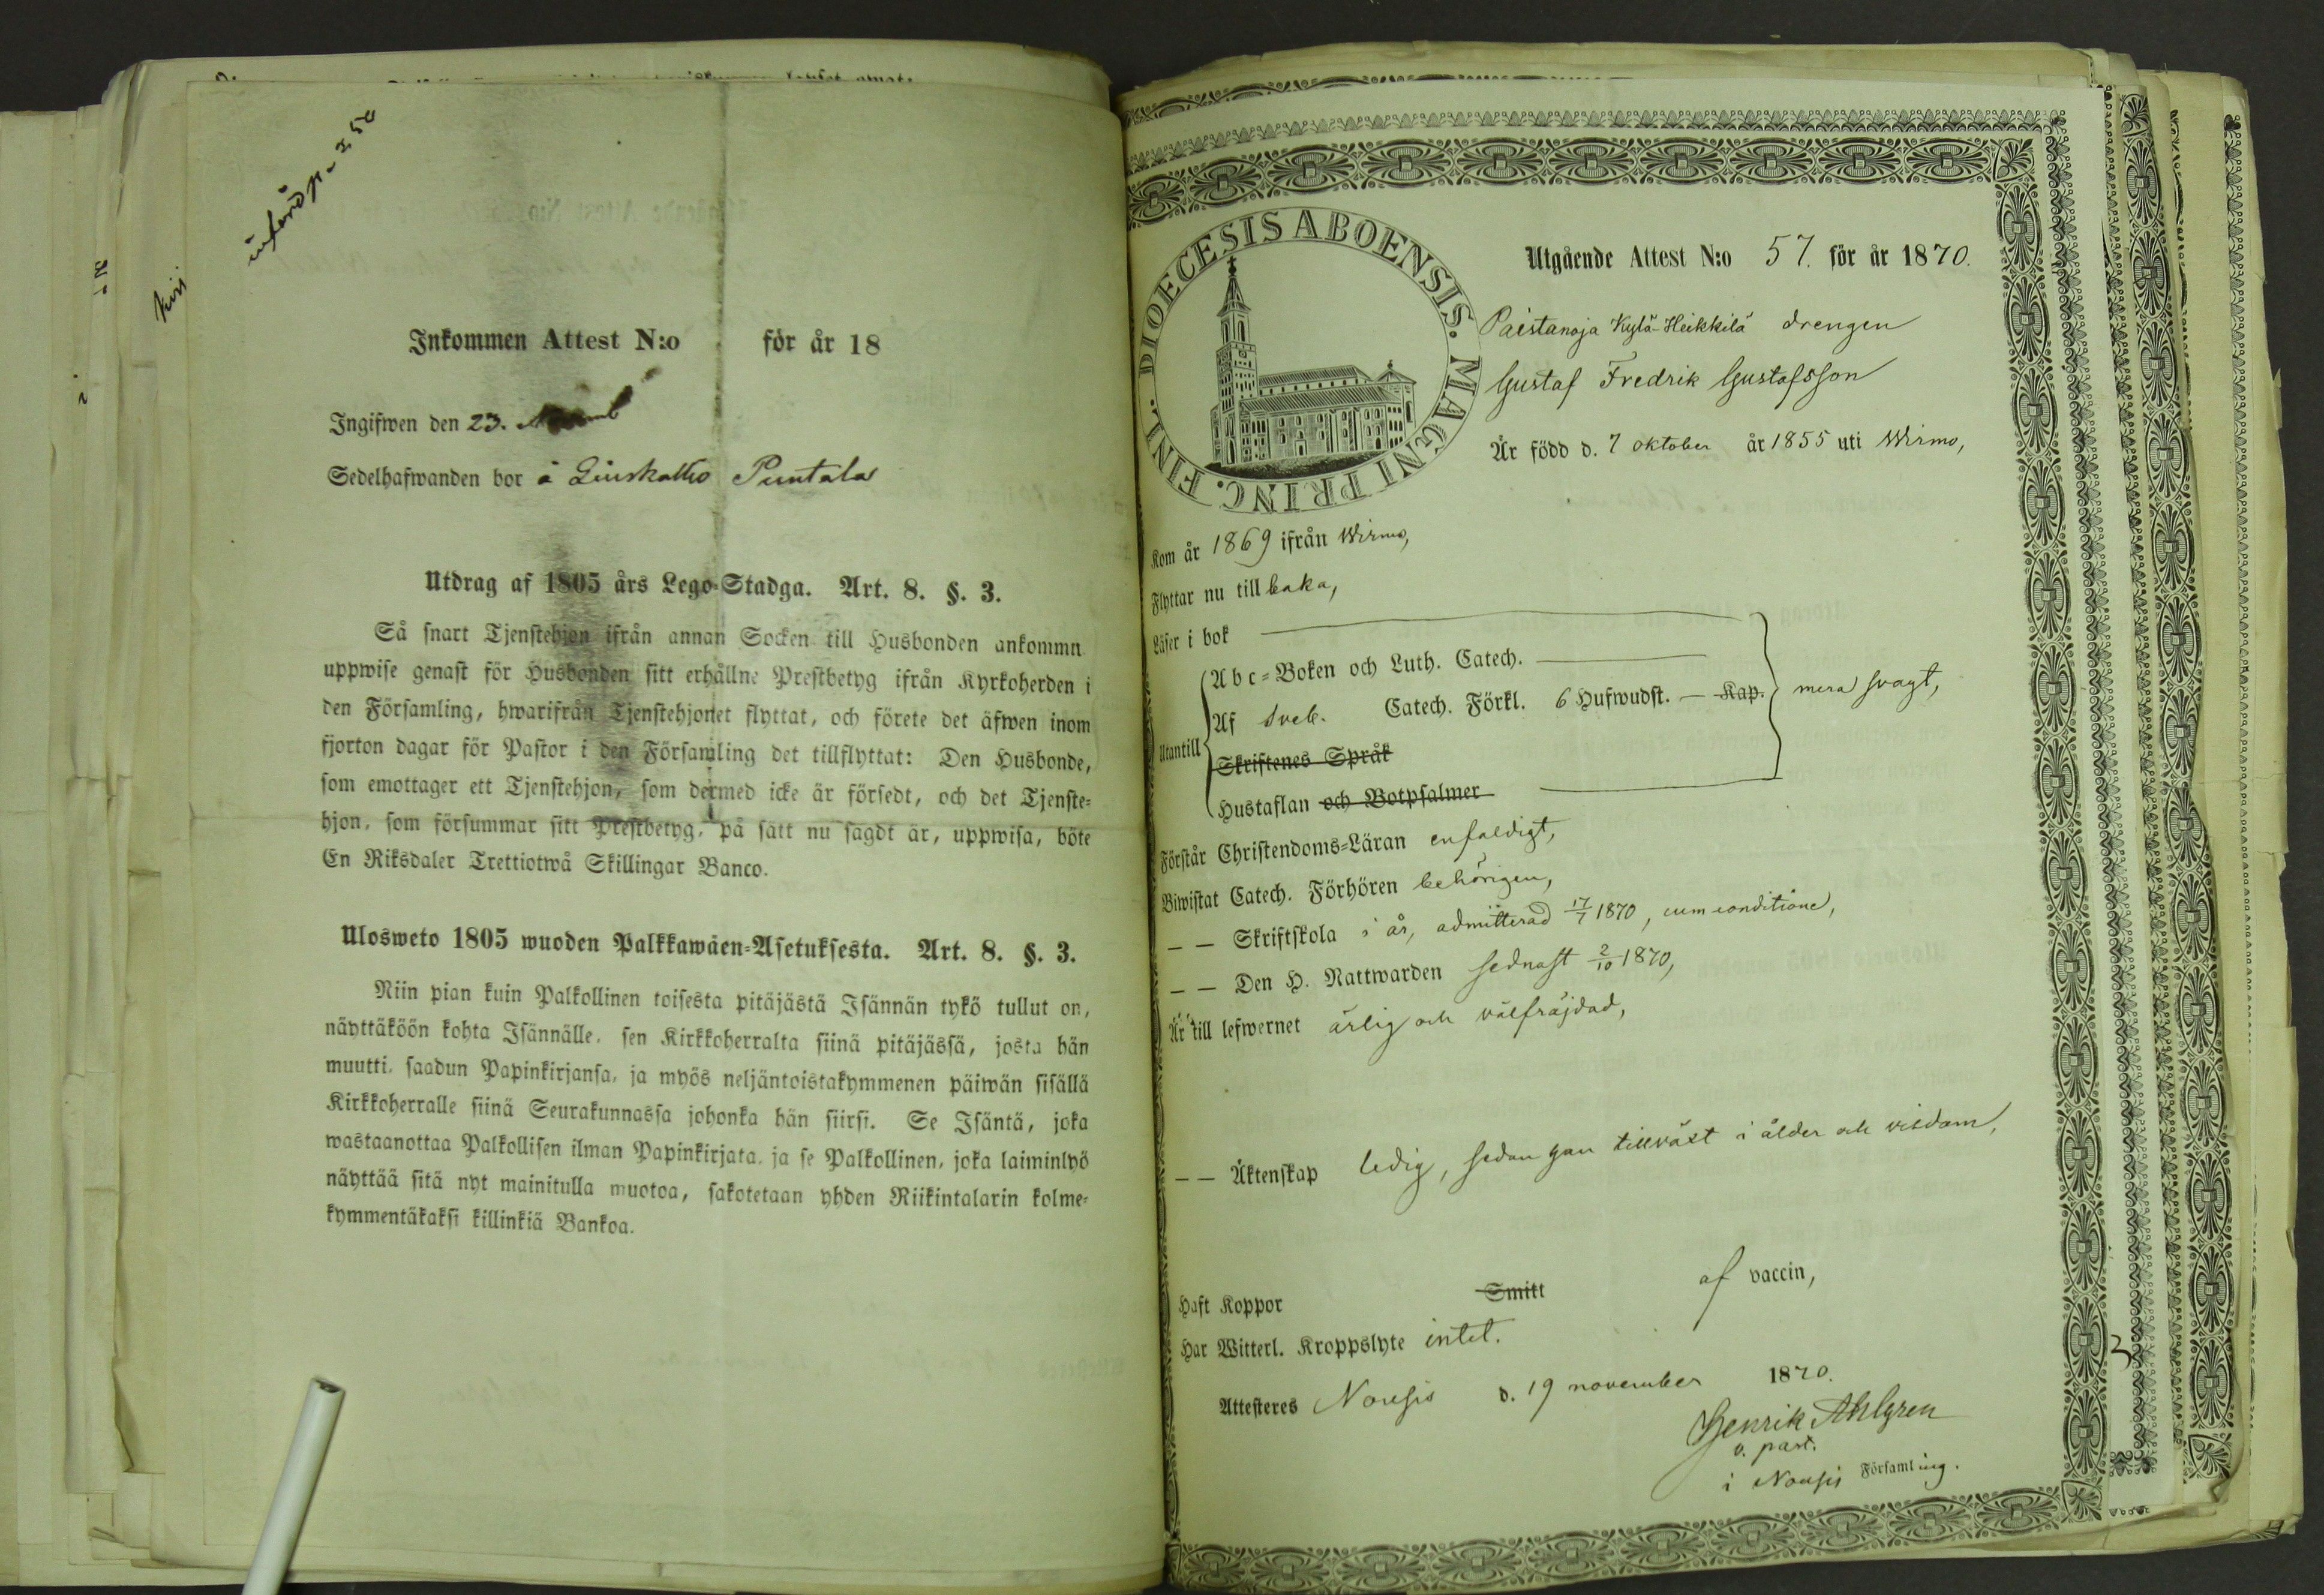 införd p. I 50
Inkommen Attest N:o för år 18
Ingifwen den 23.
Sedelhafwanden bor å Liuskallio Puntala
Utdrag af 1805 års Lego-Stadga. Art. 8. §. 3.
Så snart Tjenstehjon ifrån annan Socken till Husbonden ankommn
uppwise genast för Husbonden sitt erhållne Prestbetyg ifrån Kyrkoherden i
den Församling, hwarifrån Tjenstehjonet flyttat, och förete det äfwen inom
fjorton dagar för Pastor i den Församling det tillflyttat: Den Husbonde,
som emottager ett Tjenstehjon, som dermed icke är försedt, och det Tjenste-
hjon, som försummar sitt Prestbetyg, på sätt nu sagdt är, uppwisa, böte
En Riksdaler Trettiotwå Skillingar Banco.
Ulosweto 1805 wuoden Palkkawäen-Asetuksesta. Art. 8. §. 3.
Niin pian kuin Palkollinen toisesta pitäjästä Isännän tykö tullut on,
näyttäköön kohta Isännälle, sen Kirkkoherralta siinä pitäjässä, josta hän
muutti, saadun Papinkirjansa, ja myös neljäntoistakymmenen päiwän sisällä
Kirkkoherralle siinä Seurakunnassa johonka hän siirsi. Se Isäntä, joka
wastaanottaa Palkollisen ilman Papinkirjata, ja se Palkollinen, joka laiminlyö
näyttää sitä nyt mainitulla muotoa, sakotetaan yhden Riikintalarin kolme-
kymmentäkaksi killinkiä Bankoa.
DIOECESIS ABOENSIS. MAGNI PRINC. FINL.
Utgående Attest N:o 57. för år 1870.
Paistanoja Kylä-Heikkilä drengen
Gustaf Fredrik Gustafsson
Är född d. 7 oktober år 1855 uti Wirmo,
Kom år 1869 ifrån Wirmo,
Flyttar nu till baka,
Läser i bok
Abc-Boken och Luth. Catech.
Utantill Af Sveb. Catech. Förkl. 6 Hufwudst. — Kap. mera svagt,
Skriftenes Språk
Hustaflan och Botpsalmer
Förstår Christendoms-Läran enfaldigt,
Biwistat Catech. Förhören behörigen,
— — Skriftskola i år, admitterad 17/7 1870, cum conditione,
— — Den H. Nattwarden sednast 2/10 1870,
Är till lefwernet ärlig och välfräjdad,
— — Äktenskap ledig, sedan han tillväxt i ålder och visdom,
Haft Koppor Smitt af vaccin,
Har Witterl. Kroppslyte intet.
Attesteres Nousis d. 19 november 1870.
Henrik Ahlgren
v. past.
i Nousis Församling.
3